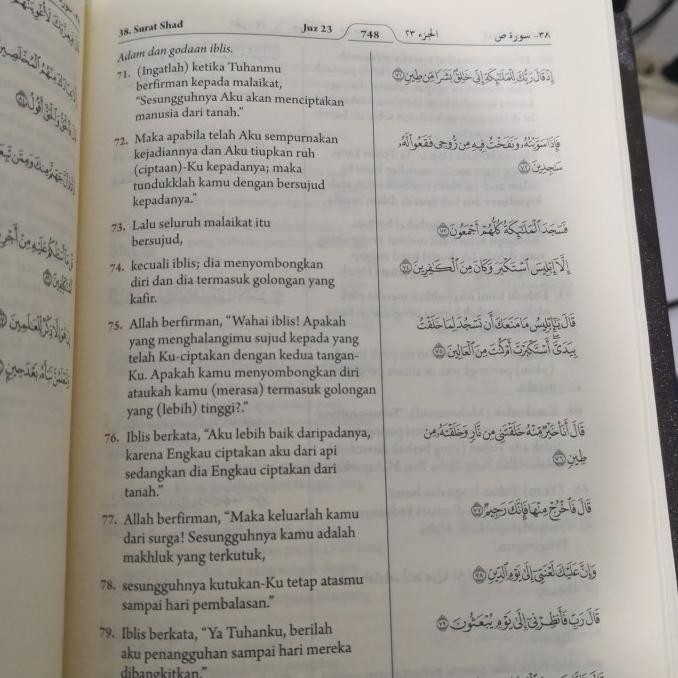 38. Surat Shad
Juz 23
748
الجزء ٢٣
٣٨- سورة ص
Adam dan godaan iblis.
71. (Ingatlah) ketika Tuhanmu
berfirman kepada malaikat,
“Sesungguhnya Aku akan menciptakan
manusia dari tanah.”
إِذْ قَالَ رَبُّكَ لِلْمَلَٰٓئِكَةِ إِنِّى خَٰلِقٌۢ بَشَرًا مِّن طِينٍ ٧١
72. Maka apabila telah Aku sempurnakan
kejadiannya dan Aku tiupkan ruh
(ciptaan)-Ku kepadanya; maka
tundukklah kamu dengan bersujud
kepadanya.”
فَإِذَا سَوَّيْتُهُۥ وَنَفَخْتُ فِيهِ مِن رُّوحِى فَقَعُوا۟ لَهُۥ
سَٰجِدِينَ ٧٢
73. Lalu seluruh malaikat itu
bersujud,
فَسَجَدَ ٱلْمَلَٰٓئِكَةُ كُلُّهُمْ أَجْمَعُونَ ٧٣
74. kecuali iblis; dia menyombongkan
diri dan dia termasuk golongan yang
kafir.
إِلَّآ إِبْلِيسَ ٱسْتَكْبَرَ وَكَانَ مِنَ ٱلْكَٰفِرِينَ ٧٤
75. Allah berfirman, “Wahai iblis! Apakah
yang menghalangimu sujud kepada yang
telah Ku-ciptakan dengan kedua tangan-
Ku. Apakah kamu menyombongkan diri
ataukah kamu (merasa) termasuk golongan
yang (lebih) tinggi?.”
قَالَ يَٰٓإِبْلِيسُ مَا مَنَعَكَ أَن تَسْجُدَ لِمَا خَلَقْتُ
بِيَدَىَّ أَسْتَكْبَرْتَ أَمْ كُنتَ مِنَ ٱلْعَالِينَ ٧٥
76. Iblis berkata, “Aku lebih baik daripadanya,
karena Engkau ciptakan aku dari api
sedangkan dia Engkau ciptakan dari
tanah.”
قَالَ أَنَا۠ خَيْرٌ مِّنْهُ خَلَقْتَنِى مِن نَّارٍ وَخَلَقْتَهُۥ مِن
طِينٍ ٧٦
77. Allah berfirman, “Maka keluarlah kamu
dari surga! Sesungguhnya kamu adalah
makhluk yang terkutuk,
قَالَ فَٱخْرُجْ مِنْهَا فَإِنَّكَ رَجِيمٌ ٧٧
78. sesungguhnya kutukan-Ku tetap atasmu
sampai hari pembalasan.”
وَإِنَّ عَلَيْكَ لَعْنَتِىٓ إِلَىٰ يَوْمِ ٱلدِّينِ ٧٨
79. Iblis berkata, “Ya Tuhanku, berilah
aku penangguhan sampai hari mereka
dibangkitkan.”
قَالَ رَبِّ فَأَنظِرْنِىٓ إِلَىٰ يَوْمِ يُبْعَثُونَ ٧٩